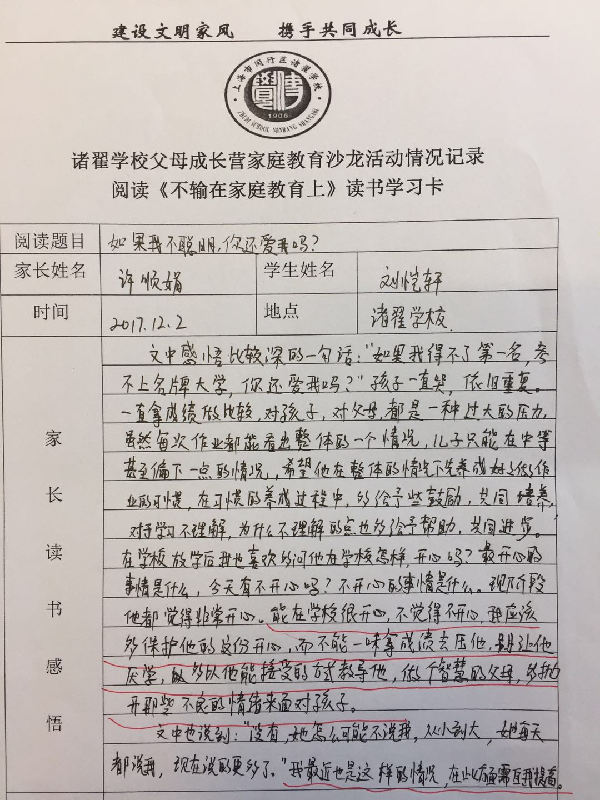 建设文明家风 携手共同成长
上海市闵行区诸翟学校
1906
ZHUDI SCHOOL MINHANG SHANGHAI
诸翟学校父母成长营家庭教育沙龙活动情况记录
阅读《不输在家庭教育上》读书学习卡
阅读题目 如果我不聪明,你还爱我吗?
家长姓名 许顺娟 学生姓名 刘恺轩
时间 2017.12.2 地点 诸翟学校
家长读书感悟
文中感悟比较深的一句话:“如果我得不了第一名,考
不上名牌大学,你还爱我吗?”孩子一直哭,依旧重复。
一直拿成绩做比较,对孩子,对父母,都是一种过大的压力,
虽然每次作业都能看出整体的一个情况,儿子只能在中等
甚至偏下一点的情况,希望他在整体的情况下先养成好的做作
业的习惯,在习惯的养成过程中,多给予些鼓励,共同培养,
对于学习不理解,为什么不理解的点也多给予帮助,共同进步。
在学校放学后我也喜欢多问他在学校怎样,开心吗?最开心的
事情是什么,今天有不开心吗?不开心的事情是什么。现阶段
他都觉得非常开心。能在学校很开心,不觉得不开心,我应该
多保护他的这份开心,而不能一味拿成绩去压他,别让他
厌学,多以他能接受的方式教导他,做个智慧的父母,多抛
开那些不良的情绪来面对孩子。
文中也说到:“没有,她怎么可能不说我,从小到大,她每天
都说我,现在说的更多了。”我最近也是这样的情况,在此方面需自我提高。